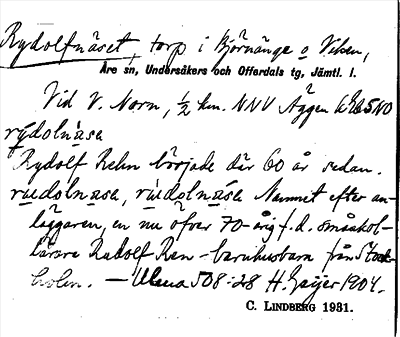 Rydolfnäset, torp i Björnänge o Viken,
Åre sn, Undersåkers och Offerdals tg, Jämtl. l.
Vid V. Norn, ½ km. NNV Äggen
rydolnäsa
Rydolf Rehn började där 60 år sedan.
rúdolnäsa, rúdolnäsa Namnet efter an-
läggaren, en nu öfver 70-årig f.d. småskol-
lärare Rudolf Ren - barnhusbarn från Stock-
holm. — Ulma 508:28 H. Geijer 1904.
C. LINDBERG 1931.